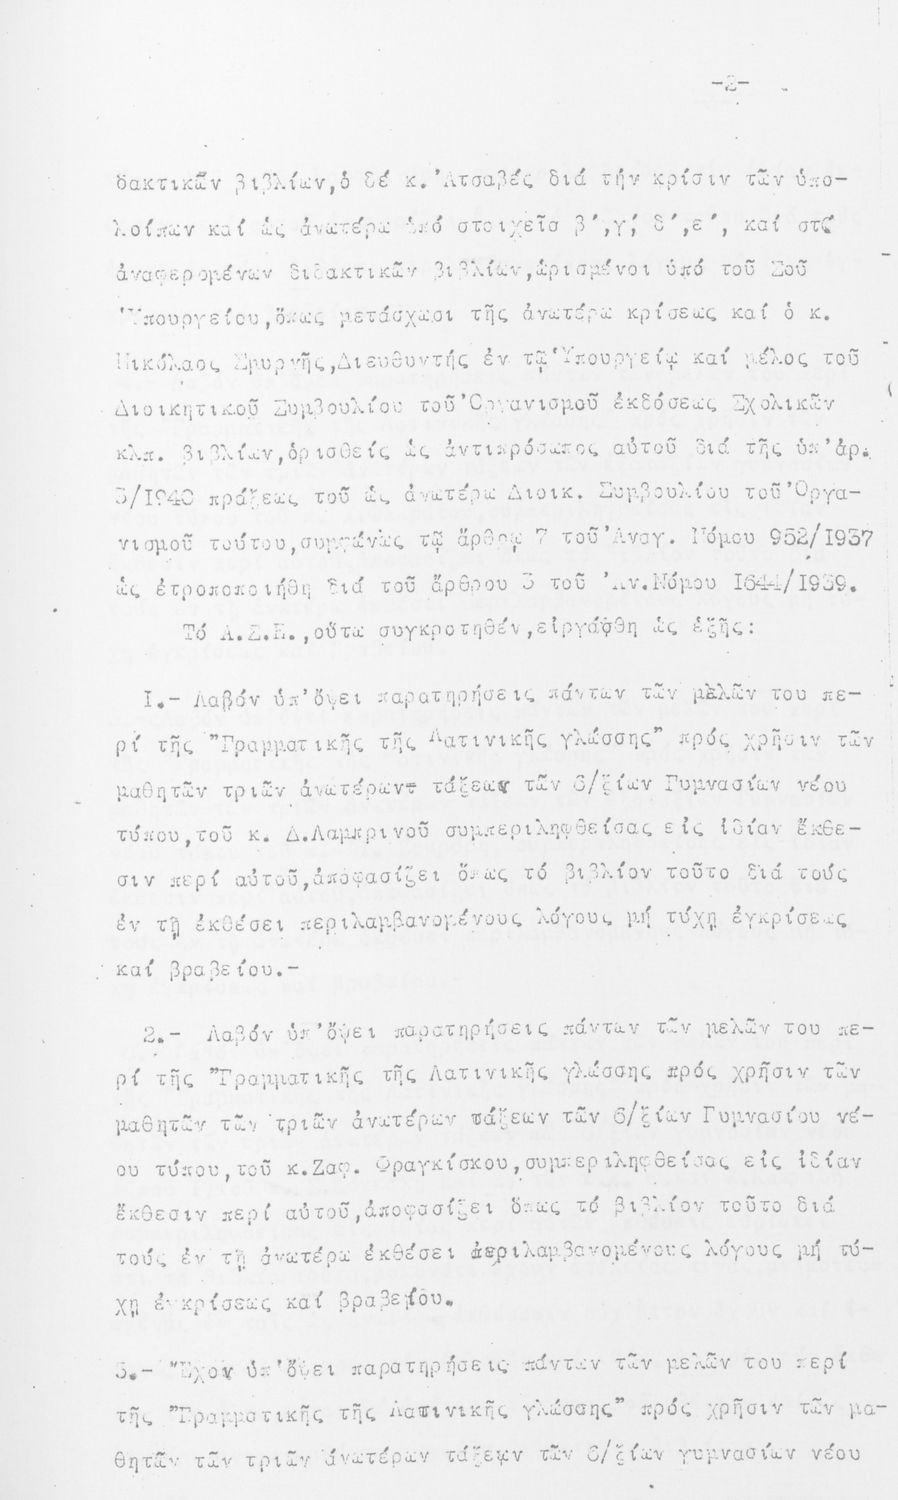 -2-
δακτικῶν βιβλίων,ὁ δέ κ.'Ατσαβές διά τήν κρίσιν τῶν ὑπο-
λοίπων καί ὡς ἀνωτέρω ὑπό στοιχεῖα β',γ', δ',ε', καί στ'
ἀναφερομένων διδακτικῶν βιβλίων,ὡρισμένοι ὑπό τοῦ Σοῦ
'Υπουργείου,ὅπως μετάσχωσι τῆς ἀνωτέρω κρίσεως καί ὁ κ.
Νικόλαος Σμυρνῆς,Διευθυντής ἐν τῷ 'Υπουργείῳ καί μέλος τοῦ
Διοικητικοῦ Συμβουλίου τοῦ 'Οργανισμοῦ ἐκδόσεως Σχολικῶν
κλπ. βιβλίων,ὁρισθείς ὡς ἀντιπρόσωπος αὐτοῦ διά τῆς ὑπ'ἀρ.
3/1940 πράξεως τοῦ ὡς ἀνωτέρω Διοικ. Συμβουλίου τοῦ 'Οργα-
νισμοῦ τούτου,συμφώνως τῷ ἄρθρῳ 7 τοῦ 'Αναγ. Νόμου 952/1937
ὡς ἐτροποποιήθη διά τοῦ ἄρθρου 3 τοῦ 'Αν.Νόμου 1644/1939.
Τό Α.Σ.Ε.,οὕτω συγκροτηθέν,εἰργάσθη ὡς ἑξῆς:
1.- Λαβόν ὑπ'ὄψει παρατηρήσεις πάντων τῶν μελῶν του πε-
ρί τῆς "Γραμματικῆς τῆς Λατινικῆς γλώσσης" πρός χρῆσιν τῶν
μαθητῶν τριῶν ἀνωτέρων τάξεων τῶν 6/ξίων Γυμνασίων νέου
τύπου,τοῦ κ. Δ.Λαμπρινοῦ συμπεριληφθείσας εἰς ἰδίαν ἔκθε-
σιν περί αὐτοῦ,ἀποφασίζει ὅπως τό βιβλίον τοῦτο διά τούς
ἐν τῇ ἐκθέσει περιλαμβανομένους λόγους μή τύχῃ ἐγκρίσεως
καί βραβείου.-
2.- Λαβόν ὑπ'ὄψει παρατηρήσεις πάντων τῶν μελῶν του πε-
ρί τῆς "Γραμματικῆς τῆς Λατινικῆς γλώσσης πρός χρῆσιν τῶν
μαθητῶν τῶν τριῶν ἀνωτέρων τάξεων τῶν 6/ξίων Γυμνασίου νέ-
ου τύπου,τοῦ κ.Ζαφ. Φραγκίσκου,συμπεριληφθείσας εἰς ἰδίαν
ἔκθεσιν περί αὐτοῦ,ἀποφασίζει ὅπως τό βιβλίον τοῦτο διά
τούς ἐν τῇ ἀνωτέρω ἐκθέσει περιλαμβανομένους λόγους μή τύ-
χῃ ἐγκρίσεως καί βραβείου.
3.- "Εχον ὑπ'ὄψει παρατηρήσεις πάντων τῶν μελῶν του περί
τῆς "Γραμματικῆς τῆς Λατινικῆς γλώσσης" πρός χρῆσιν τῶν μα-
θητῶν τῶν τριῶν ἀνωτέρων τάξεων τῶν 6/ξίων γυμνασίων νέου